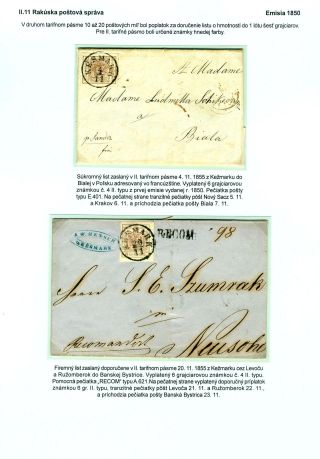 II.11 Rakúska poštová správa
Emisia 1850
V druhom tarifnom pásme 10 až 20 poštových míľ bol poplatok za doručenie listu o hmotnosti do 1 lótu šesť grajciarov.
Pre II. tarifné pásmo boli určené známky hnedej farby.
KESMARK
4
11
A Madame
Madame Ludmilla
Biala
Súkromný list zaslaný v II. tarifnom pásme 4. 11. 1855 z Kežmarku do
Bialej v Poľsku adresovaný vo francúzštine. Vyplatený 6 grajciarovou
známkou č. 4 II. typu z prvej emisie vydanej r. 1850. Pečiatka pošty
typu E.401. Na pečatnej strane tranzitné pečiatky pôšt Nový Sacz 5. 11
a Krakov 6. 11. a príchodzia pečiatka pošty Biala 7. 11.
KESMARK
KESMARK
20
11
RECOM
98
Herrn S. E. Szumrak
in
Recomandirt
Neusohl
Firemný list zaslaný doporučene v II. tarifnom pásme 20. 11. 1855 z Kežmarku cez Levoču
a Ružomberok do Banskej Bystrice. Vyplatený 6 grajciarovou známkou č. 4 II. typu.
Pomocná pečiatka „RECOM" typu A.621. Na pečatnej strane vyplatený doporučný príplatok
známkou 6 gr. II. typu, tranzitné pečiatky pôšt Levoča 21. 11. a Ružomberok 22. 11.,
a príchodzia pečiatka pošty Banská Bystrica 23. 11.